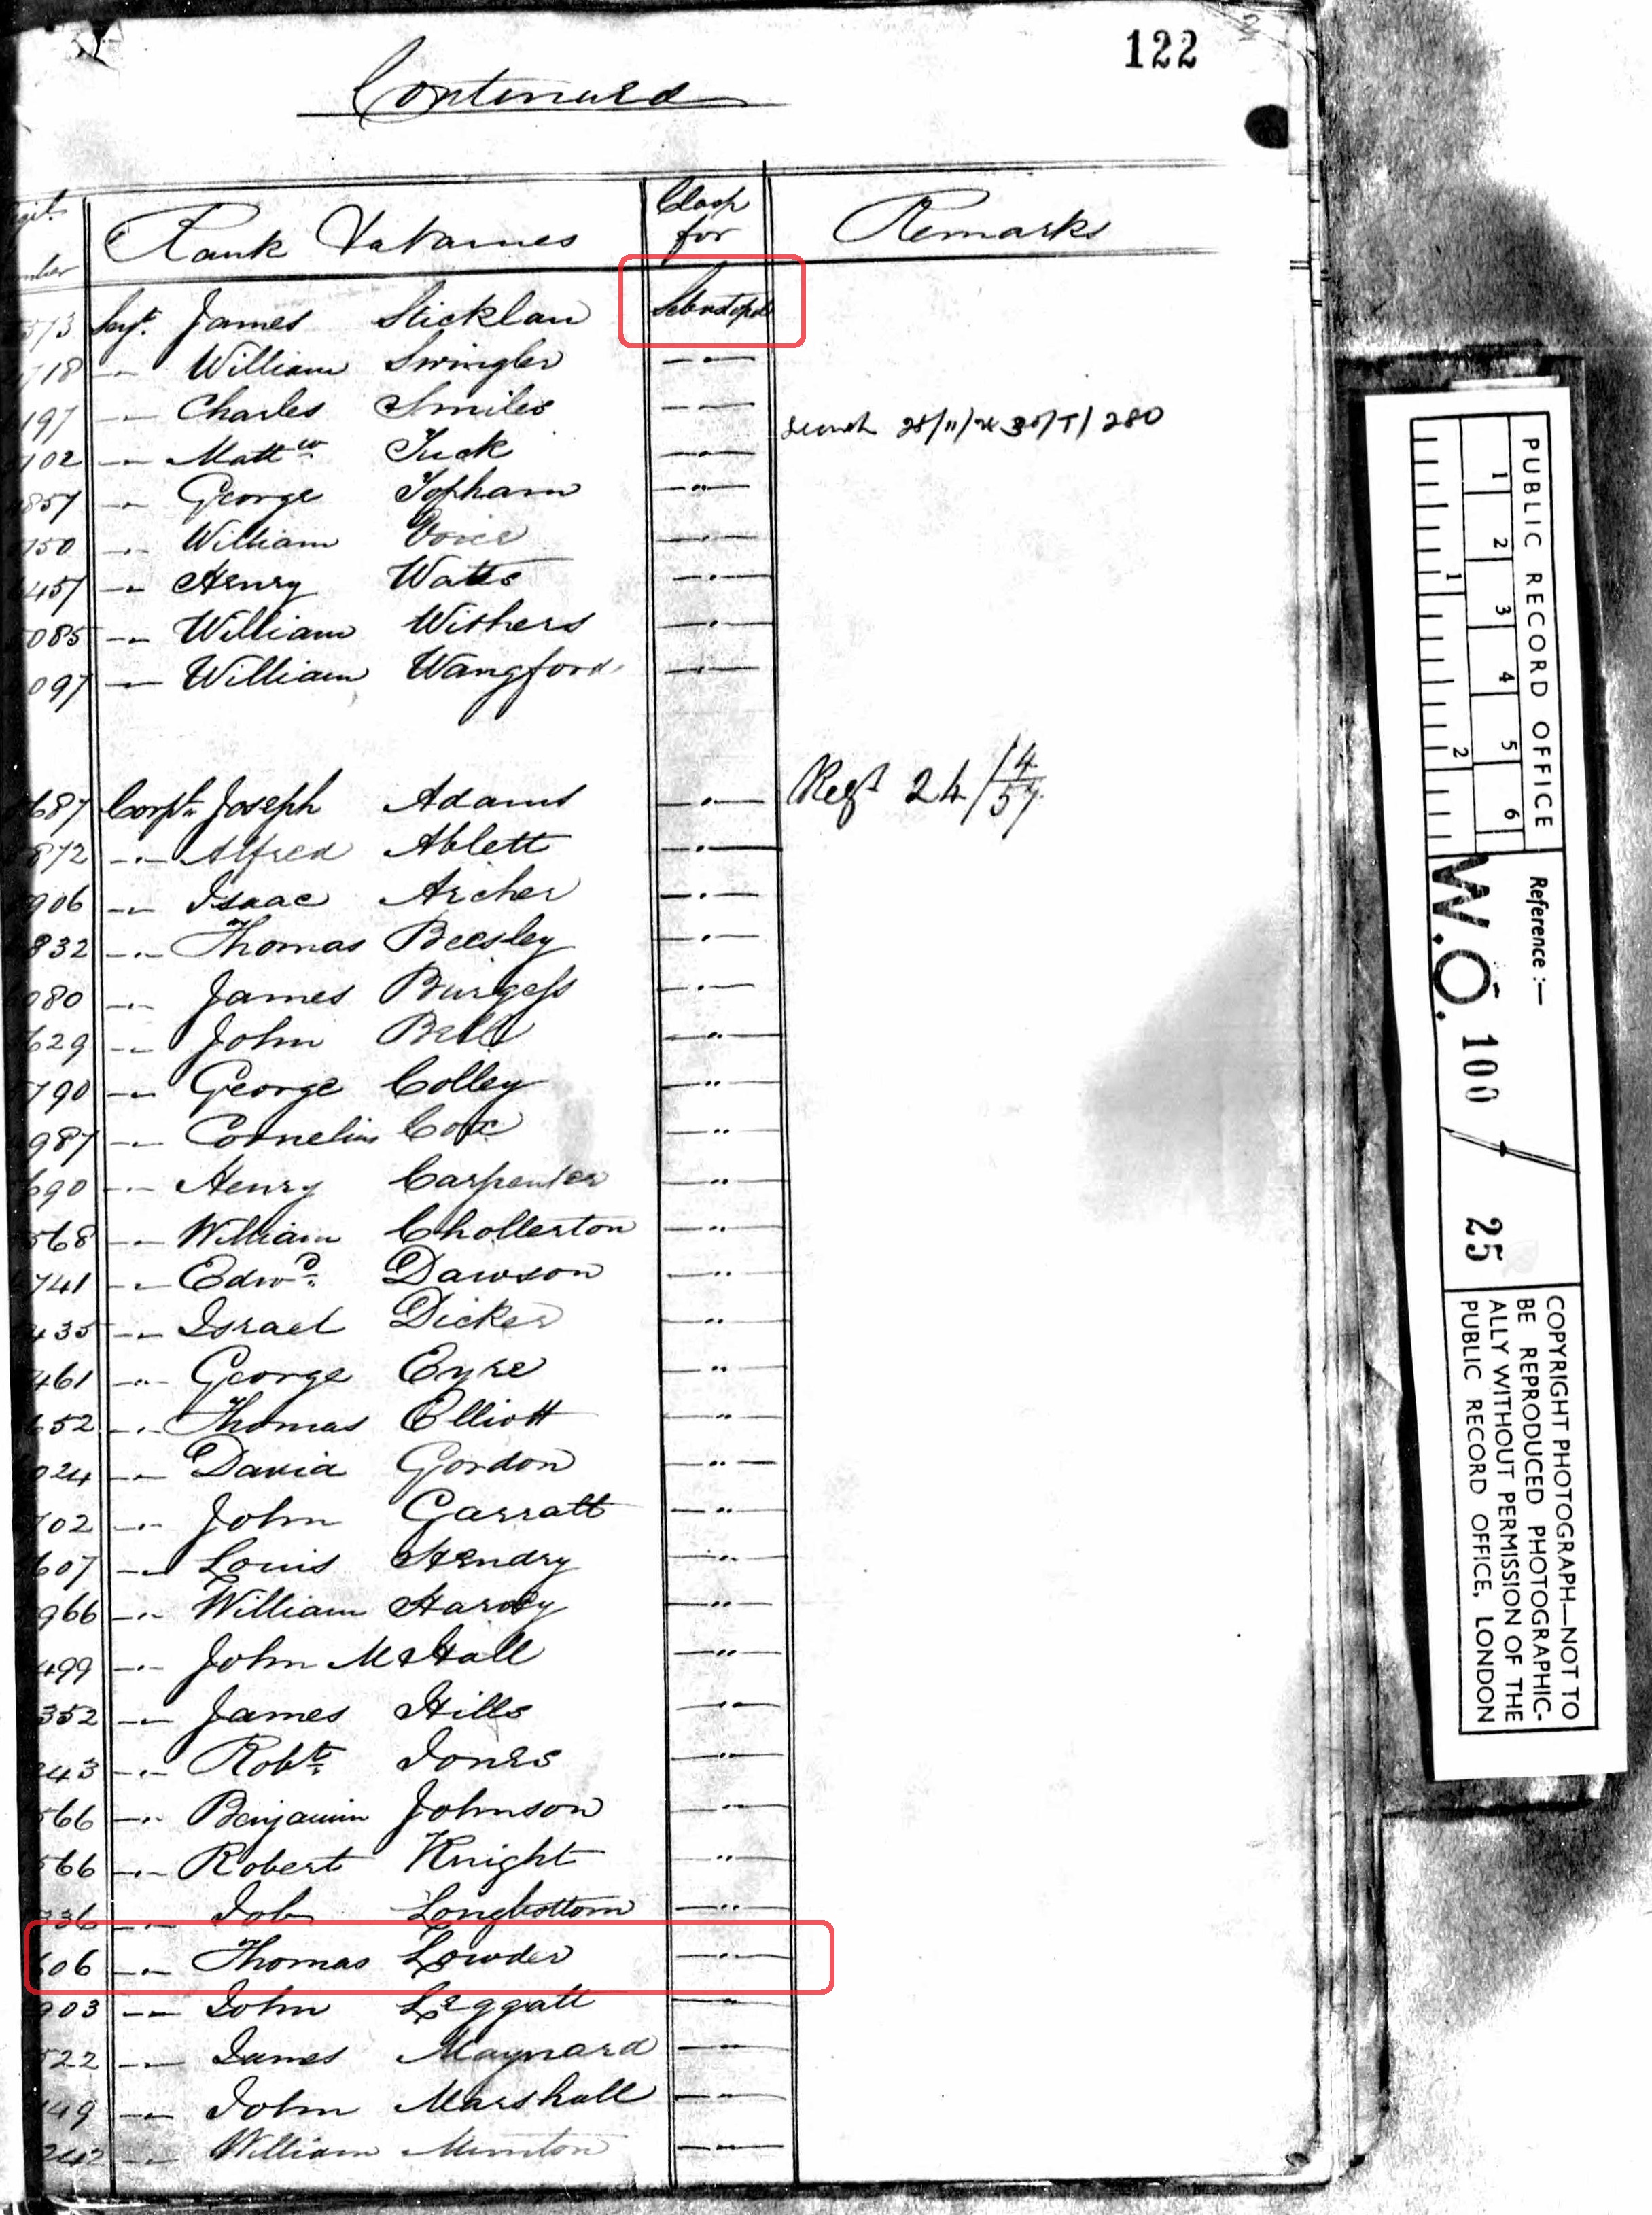 122
Continued
Regtl. Number Rank & Names Clasp for Remarks
573 Sergt. James Sticklan Sebastopol
718 —"— William Swingler —"—
197 —"— Charles Smiles —"—
102 —"— Mattw. Tuck —"— search 28/11/ 30/T/280
857 —"— George Topham —"—
750 —"— William Voice —"—
457 —"— Henry Watts —"—
085 —"— William Withers —"—
097 —"— William Wangford —"—
687 Corpl. Joseph Adams —"— 24/4/57
872 —"— Alfred Ablett —"—
906 —"— Isaac Archer —"—
832 —"— Thomas Beesley —"—
080 —"— James Burgess —"—
629 —"— John Bell —"—
790 —"— George Colley —"—
987 —"— Cornelius Cox —"—
690 —"— Henry Carpenter —"—
568 —"— William Chollerton —"—
741 —"— Edwd. Dawson —"—
435 —"— Israel Dicker —"—
461 —"— George Eyre —"—
652 —"— Thomas Elliott —"—
024 —"— David Gordon —"—
702 —"— John Garratt —"—
607 —"— Louis Hendry —"—
966 —"— William Harvey —"—
499 —"— John M Hall —"—
352 —"— James Hills —"—
243 —"— Robt. Jones —"—
566 —"— Benjamin Johnson —"—
566 —"— Robert Knight —"—
336 —"— Job Longbottom —"—
606 —"— Thomas Lowder —"—
903 —"— John Leggatt —"—
522 —"— James Maynard —"—
149 —"— John Marshall —"—
242 —"— William —"—
PUBLIC RECORD OFFICE
1 2 3 4 5 6
1 2
Reference :—
W.O. 100 / 25
COPYRIGHT PHOTOGRAPH—NOT TO
BE REPRODUCED PHOTOGRAPHIC-
ALLY WITHOUT PERMISSION OF THE
PUBLIC RECORD OFFICE, LONDON